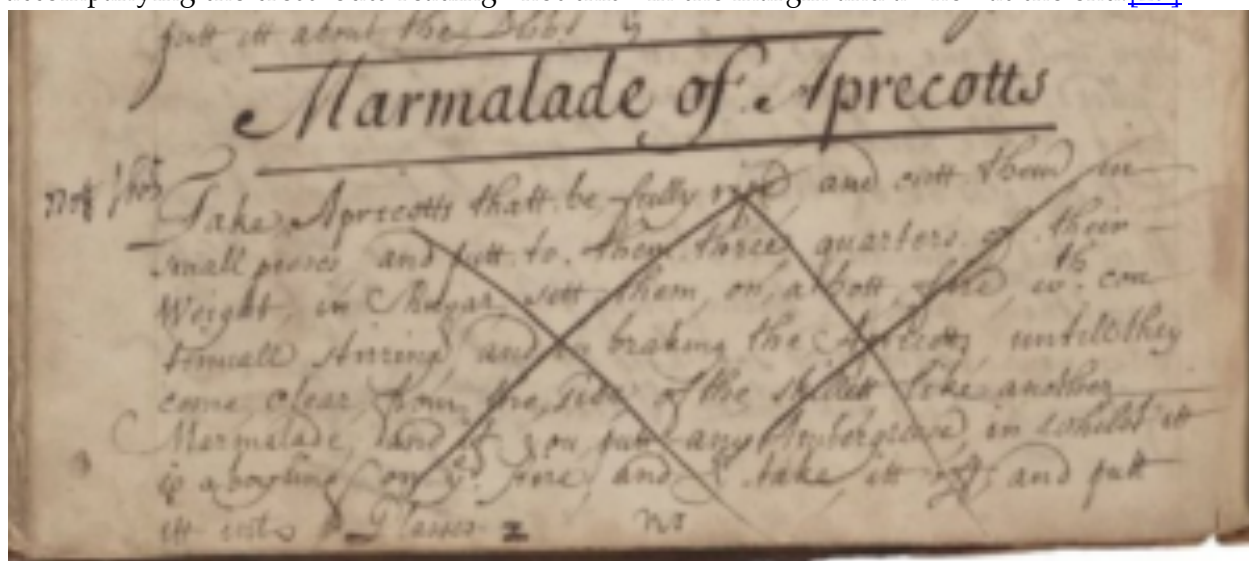 putt itt about the
Marmalade of Aprecotts
nott this
Take Apricotts thatt be fully ripe and cutt them in
small peices and putt to them three quarters of their
Weight, in Shugar sett them, on, a hott, fire, wth. con
tinuall stirring and braking the Apricotts untill they
come clear from the side of the skillett like another
Marmalade, and if you putt any Ambergreece, in whilst itt
is a boyling on ye. fire, and take itt off, and putt
itt into Glasses
no